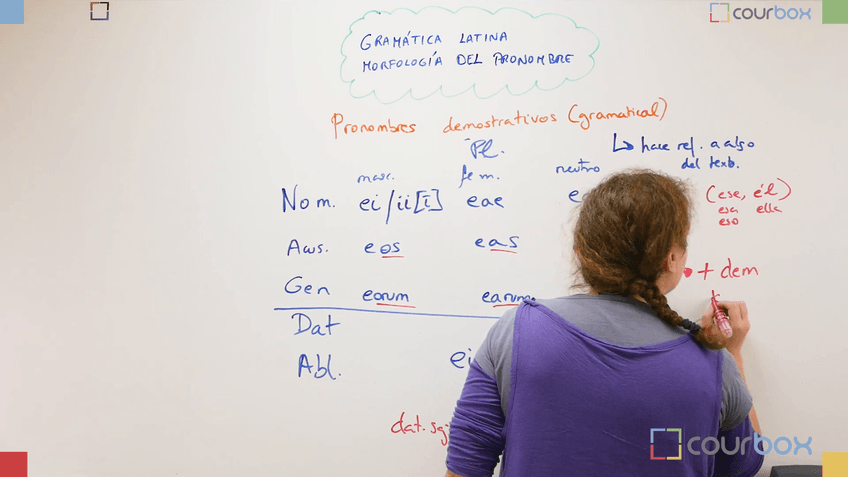 courbox
GRAMÁTICA LATINA
MORFOLOGÍA DEL PRONOMBRE
Pronombres demostrativos (gramatical)
Pl.
↳ hace ref. a algo
del texto.
masc. fem. neutro
Nom. ei/ii[ī] eae
(ese, él)
esa ella
eso
Acus. eos eas
+ dem
Gen eorum earum
Dat
Abl.
dat. sg
courbox